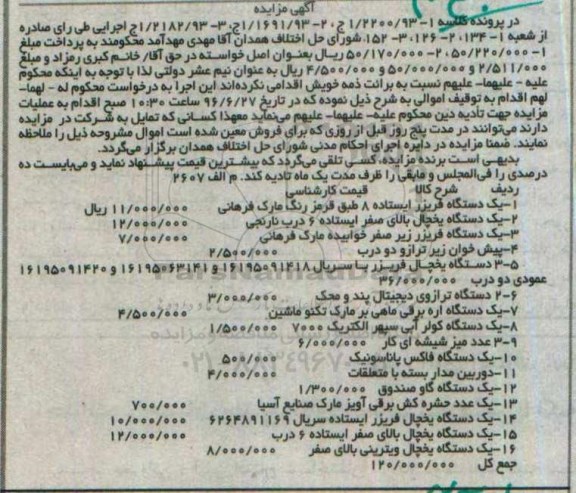 آگهی مزایده
در پرونده کلاسه ۱- ۱/۲۲۰۰/۹۳ ج، ۲- ۱/۱۶۹۱/۹۳ج، ۳- ۱/۲۱۸۲/۹۳ج اجرایی طی رای صادره
از شعبه ۱- ۲۰۱۳۴- ۱۲۶، ۳- ۱۵۲، شورای حل اختلاف همدان آقا مهدی مهدآمد محکومند به پرداخت مبلغ
۱- ۵۰/۲۲۰/۰۰۰، ۲- ۵۰/۱۷۰/۰۰۰ ریال بعنوان اصل خواسته در حق آقا/ خانم کبری رمزاد و مبلغ
۲/۵۱۱/۰۰۰ و ۵۰/۰۰۰/۰۰۰ و ۴/۵۰۰/۰۰۰ ریال به عنوان نیم عشر دولتی لذا با توجه به اینکه محکوم
علیه - علیهما- علیهم نسبت به برائت ذمه خویش اقدامی نکرده‌اند این اجرا به درخواست محکوم له - لهما-
لهم اقدام به توقیف اموالی به شرح ذیل نموده که در تاریخ ۹۶/۶/۲۷ ساعت ۱۰:۳۰ صبح اقدام به عملیات
مزایده جهت تأدیه دین محکوم علیه- علیهما- علیهم می‌نماید معهذا کسانی که تمایل به شرکت در مزایده
دارند می‌توانند در مدت پنج روز قبل از روزی که برای فروش معین شده است اموال مشروحه ذیل را ملاحظه
نمایند. ضمنا مزایده در دایره اجرای احکام مدنی شورای حل اختلاف همدان برگزار می‌گردد.
بدیهی است برنده مزایده، کسی تلقی می‌گردد که بیشترین قیمت پیشنهاد نماید و می‌بایست ده
درصدی را فی‌المجلس و مابقی را ظرف مدت یک ماه تادیه کند. م الف ۲۶۰۷
ردیف شرح کالا قیمت کارشناسی
۱-یک دستگاه فریزر ایستاده ۸ طبق قرمز رنگ مارک فرهانی ۱۱/۰۰۰/۰۰۰ ریال
۲-یک دستگاه یخچال بالای صفر ایستاده ۶ درب نارنجی ۱۲/۰۰۰/۰۰۰
۳-یک دستگاه فریزر زیر صفر خوابیده مارک فرهانی ۷/۰۰۰/۰۰۰
۴-پیش خوان زیر ترازو دو درب ۲/۵۰۰/۰۰۰
۵-۳ دستگاه یخچال فریزر با سریال ۱۶۱۹۵۰۹۱۴۱۸ و ۱۶۱۹۵۰۶۳۱۴۱ و ۱۶۱۹۵۰۹۱۴۲۰
عمودی دو درب ۳۶/۰۰۰/۰۰۰
۶-۲ دستگاه ترازوی دیجیتال پند و محک ۳/۰۰۰/۰۰۰
۷-یک دستگاه اره برقی ماهی بر مارک تکنو ماشین ۴/۵۰۰/۰۰۰
۸-یک دستگاه کولر آبی سپهر الکتریک ۷۰۰۰ ۱/۵۰۰/۰۰۰
۹-۳ عدد میز شیشه ای کار ۶/۰۰۰/۰۰۰
۱۰-یک دستگاه فاکس پاناسونیک ۵۰۰/۰۰۰
۱۱-دوربین مدار بسته با متعلقات ۴/۰۰۰/۰۰۰
۱۲-یک دستگاه گاو صندوق ۱/۳۰۰/۰۰۰
۱۳-یک عدد حشره کش برقی آویز مارک صنایع آسیا ۷۰۰/۰۰۰
۱۴-یک دستگاه یخچال فریزر ایستاده سریال ۶۲۶۴۸۹۱۱۶۹ ۱۰/۰۰۰/۰۰۰
۱۵-یک دستگاه یخچال بالای صفر ایستاده ۶ درب ۱۲/۰۰۰/۰۰۰
۱۶-یک دستگاه یخچال ویترینی بالای صفر ۸/۰۰۰/۰۰۰
جمع کل ۱۲۰/۰۰۰/۰۰۰